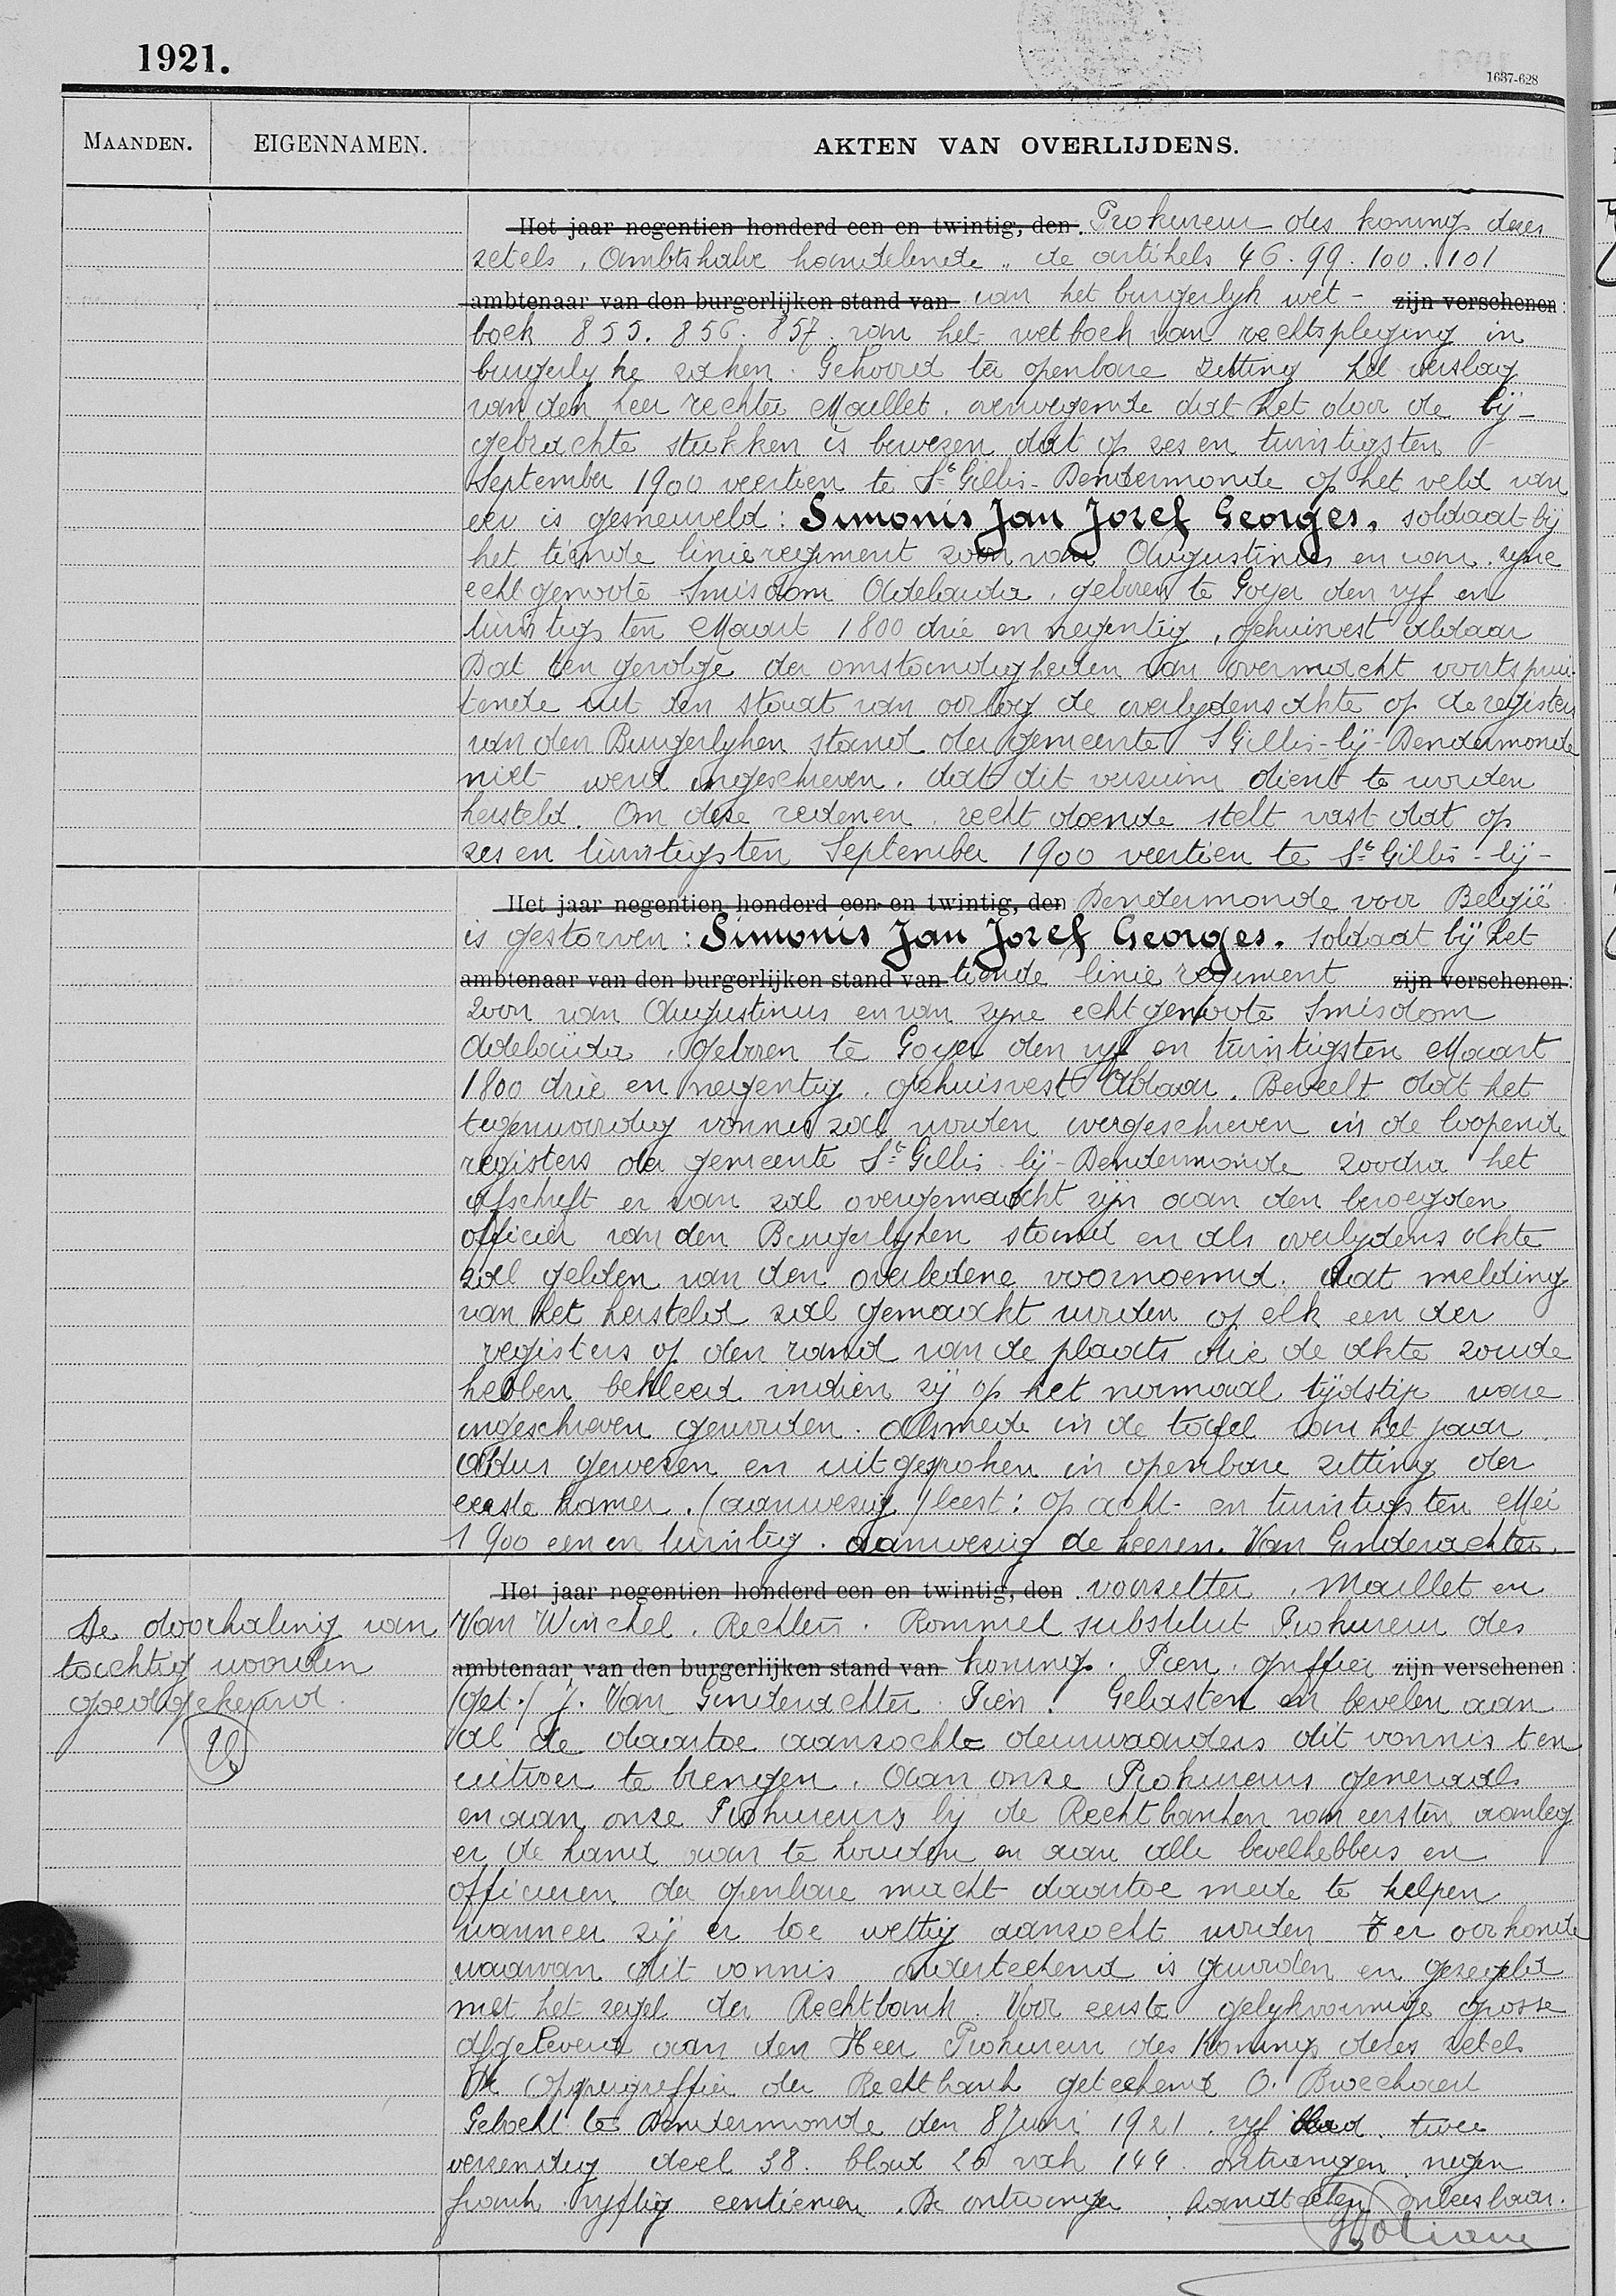 1921.
1637-628
MAANDEN. EIGENNAMEN. AKTEN VAN OVERLIJDENS.
Het jaar negentien honderd een en twintig, den Prokureur des konings dezes
zetels, Ambtshalve handelende, de artikels 46. 99. 100. 101
ambtenaar van den burgerlijken stand van van het burgerlyk wet- zijn verschenen:
boek 855. 856. 857. van het wetboek van rechtspleging in
burgerlyke zaken. Gehoord ter openbare zitting het verslag
van den heer rechter Maillet. overwegende dat het door de bij-
gebrachte stukken is bewezen dat op zes en twintigsten
September 1900 veertien te St Gillis-Dendermonde op het veld van
eer is gesneuveld: Simonis Jan Jozef Georges, soldaat bij
het tiende linieregiment zoon van Augustinus en van zyne
echtgenoote Smisdom Adelaida, geboren te Goyer den vyf en
twintigsten Maart 1800 drie en negentig, gehuisvest aldaar
Dat ten gevolge der omstandigheden van overmacht voortsprui-
tende uit den staat van oorlog de overlydensakte op de registers
van den Burgerlyken stand der gemeente St Gillis-bij-Dendermonde
niet werd ingeschreven. dat dit verzuim dient te worden
hersteld. Om deze redenen, recht doende stelt vast dat op
zes en twintigsten September 1900 veertien te St Gillis-bij-
Het jaar negentien honderd een en twintig, den Dendermonde voor België
is gestorven: Simonis Jan Jozef Georges. soldaat bij het
ambtenaar van den burgerlijken stand van tiende linie regiment zijn verschenen:
zoon van Augustinus en van zyne echtgenoote Smisdom
Adelaida, geboren te Goyer den vyf en twintigsten Maart
1800 drie en negentig, gehuisvest aldaar. Beveelt dat het
tegenwoordig vonnis zal worden overgeschreven in de loopende
registers der gemeente St Gillis-bij-Dendermonde zoodra het
afschrift er van zal overgemaakt zijn aan den bevoegden
officier van den Burgerlyken stand en als overlydens akte
zal gelden van den overledene voornoemd. dat melding
van het hersteld zal gemaakt worden op elk een der
registers op den rand van de plaats die de akte zoude
hebben bekleed indien zij op het normaal tijdstip ware
ingeschreven geworden. Alsmede in de tafel van het jaar.
Aldus gewezen en uitgesproken in openbare zitting der
eerste kamer. (aanwezig) leest: op acht en twintigsten Mei
1900 een en twintig. aanwezig de heeren. Van Ginderachter,
Het jaar negentien honderd een en twintig, den voorzitter, Maillet en
Van Winckel. Rechters. Rommel substituut Prokureur des
ambtenaar van den burgerlijken stand van konings. Pien. griffier zijn verschenen:
(get.) J. Van Ginderachter. Pien. Gelasten en bevelen aan
al de daartoe aanzochte deurwaarders dit vonnis ten
uitvoer te brengen. Aan onze Prokureurs generaals
en aan onze Prokureurs bij de Rechtbanken van eersten aanleg
er de hand aan te houden en aan alle bevelhebbers en
officieren der openbare macht daartoe mede te helpen
wanneer zij er toe wettig aanzocht worden Ter oorkonde
waarvan dit vonnis onderteekend is geworden en gezegeld
met het zegel der Rechtbank. Voor eerste gelykvormige grosse
afgeleverd aan den Heer Prokureur des Konings dezes zetels
De Oppergriffier der Rechtbank geteekend O. Broeckaert
Geboekt te Dendermonde den 8 Juni 1921. vyf blad. twee
verzending deel 38. blad 26 vak 144. ontvangen negen
frank vyftig centiemen. De ontvanger. handteeken onleesbaar.
De doorhaling van
tachtig woorden
goedgekeurd.